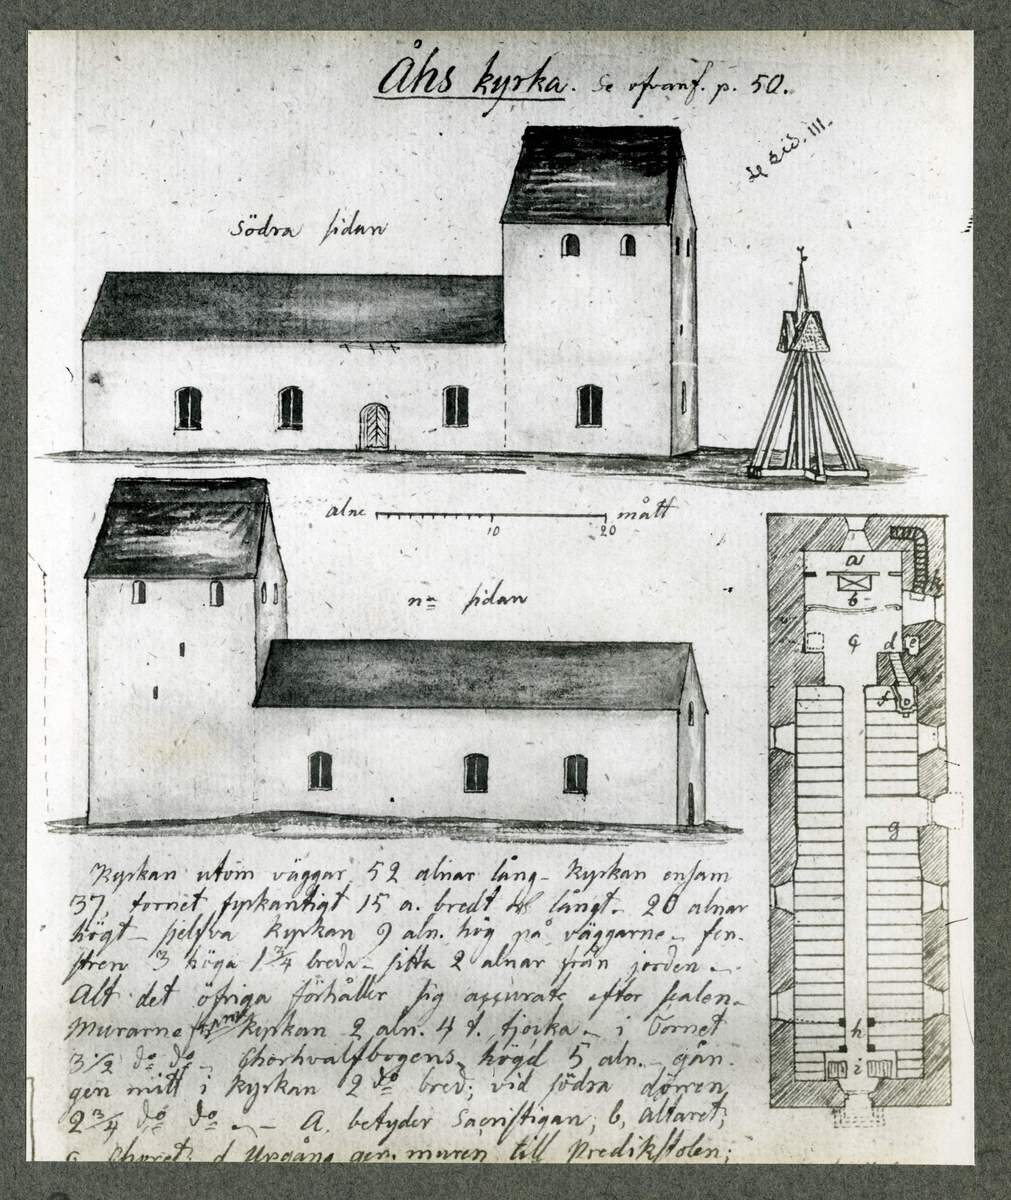 Åhs kyrka. Se ofvanf. p. 50.
Se sid. III.
Södra sidan
alne 10 20 mått
nª sidan
a
b
c
d
e
f
g
h
i
k
Kyrkan utom väggar 52 alnar lång – kyrkan ensam
37, tornet fyrkantigt 15 a. bredt och långt – 20 alnar
högt – sjelfva kyrkan 9 aln. hög på väggarne – fen-
stren 3 höga 1 3/4 breda – sitta 2 alnar från jorden –
Alt det öfriga förhåller sig accurate efter scalen –
Murarne kyrkan 2 aln. 4 t. tjocka – i Tornet
3 1/2 do do – Chorhvalfbogens högd 5 aln. – gån-
gen mitt i kyrkan 2 do bred; vid södra dörren
2 3/4 do do – A. betyder Sacristigan; b, altaret;
c Choret; d Upgång gen. muren till Predikstolen;